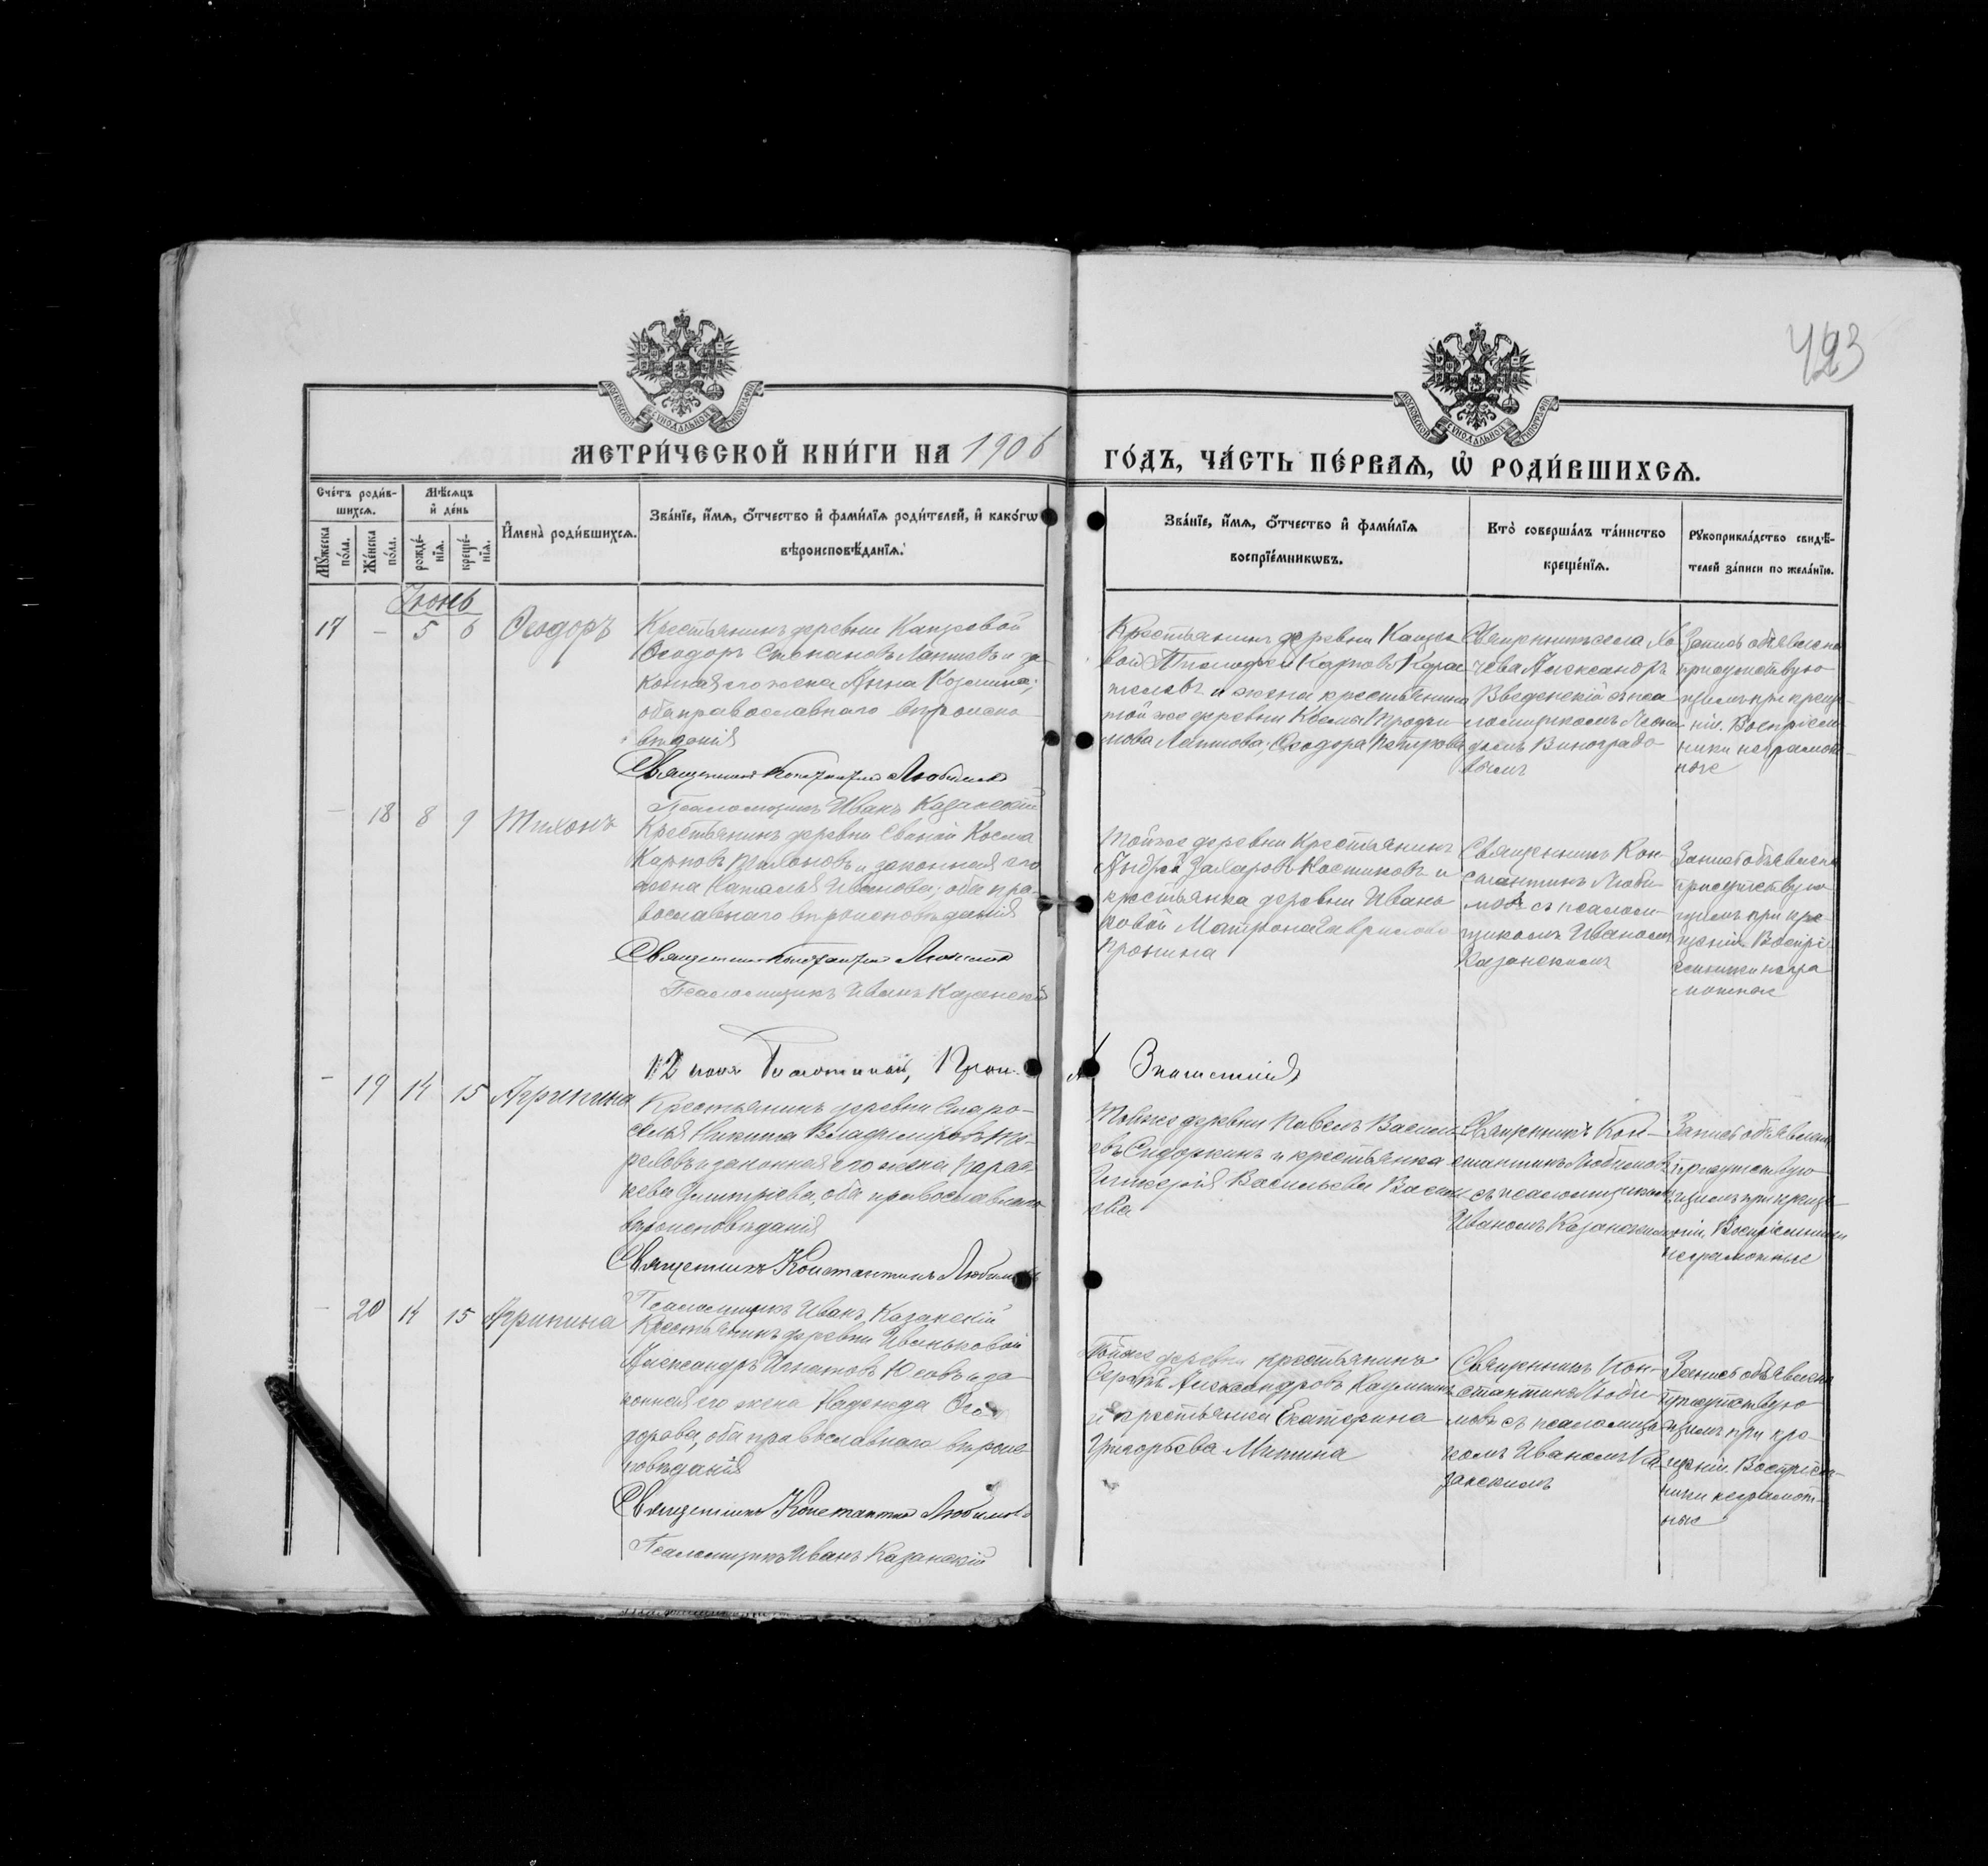 423
МОСКОВСКОЙ СѴНОДАЛЬНОЙ ТИПОГРАФІИ
МОСКОВСКОЙ СѴНОДАЛЬНОЙ ТИПОГРАФІИ
МЕТРИ́ЧЕСКОЙ КНИ́ГИ НА 1906
ГО́ДЪ, ЧА́СТЬ ПЕ́РВАѦ, Ѽ РОДИ́ВШИХСѦ.
Сче́тъ роди́в-
шихсѧ.
Мꙋ́жеска
по́ла.
Же́нска
по́ла.
Мѣ́сѧцъ
и҆ де́нь
рожде́-
нїѧ.
креще́-
нїѧ.
И҆мена̀ роди́вшихсѧ.
Зва́нїе, и҆́мѧ, ѻ҆́тчество и҆ фами́лїѧ роди́телей, и҆ како́гѡ
вѣроисповѣ́данїѧ.
Зва́нїе, и҆́мѧ, ѻ҆́тчество и҆ фами́лїѧ
воспрїе́мникѡвъ.
Кто̀ соверша́лъ та́инство
креще́нїѧ.
Рꙋкоприкла́дство свидѣ́-
телей за́писи по жела́нїю.
Іюнь
17 – 5 6 Ѳеодоръ
Крестьянинъ деревни
Ѳеодоръ Степановъ Лаптевъ и за-
конная его жена Анна Козмина;
оба православнаго вѣроиспо-
вѣданія
Священникъ Константинъ Любимовъ
Псаломщикъ Иванъ Казанскій
Крестьянинъ деревни
Карпов
и жена крестьянина
той же деревни Косма
Лаптева, Ѳеодора Петрова
Священникъ села
Александръ
Введенскій съ пса-
ломщикомъ
Виноградо-
вымъ
Запись объявлена
присутствую-
щимъ при креще-
ніи. Воспріем-
ники неграмот-
ные
– 18 8 9 Тихонъ
Крестьянинъ деревни Косма
Карповъ и законная его
жена Наталья Иванова; оба пра-
вославнаго вѣроисповѣданія
Священникъ Константинъ Любимовъ
Псаломщикъ Иванъ Казанскій
Той же деревни крестьянинъ
Андрей Захаровъ Костиковъ и
крестьянка деревни Ивань-
ковой Матрона Гаврилова
Пронина
Священникъ Кон-
стантинъ Люби-
мовъ съ псалом-
щикомъ Иваномъ
Казанскимъ
Запись объявлена
присутствую-
щимъ при кре-
щеніи. Воспріе-
мники негра-
мотные
12 іюня
– 19 14 15 Агрипина
Крестьянинъ деревни Старо-
селья Никита Владимировъ
и законная его жена Парас-
кева Димитріева, оба православнаго
вѣроисповѣданія
Священникъ Константинъ Любимовъ
Псаломщикъ Иванъ Казанскій
Той же деревни Павелъ Василь-
евъ Сидоркинъ и крестьянка
Васильева Василь-
ева
Священникъ Кон-
стантинъ Любимовъ
съ псаломщикомъ
Иваномъ Казанскимъ
Запись объявлена
присутствую-
щимъ при креще-
ніи. Воспріемники
неграмотные
– 20 14 15 Агрипина
Крестьянинъ деревни Иваньковой
Александръ Игнатовъ Юсовъ и за-
конная его жена Надежда Ѳео-
дорова, оба православнаго вѣроис-
повѣданія
Священникъ Константинъ Любимовъ
Псаломщикъ Иванъ Казанскій
Той же деревни крестьянинъ
Сергѣй Александровъ
и крестьянка Екатерина
Григорьева Митина
Священникъ Кон-
стантинъ Люби-
мовъ съ псаломщи-
комъ Иваномъ Ка-
занскимъ
Запись объявлена
присутствую-
щимъ при кре-
щеніи. Воспріем-
ники неграмот-
ные